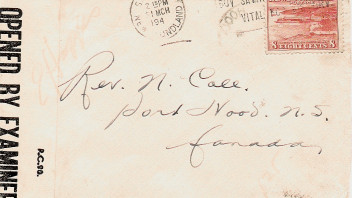 OPENED BY EXAMINER
P.C.90.
2 15PM
MCH
194
NDLAND
VITAL
8 EIGHT CENTS 8
Rev. N. Call.
Port Hood. N.S.
Canada,